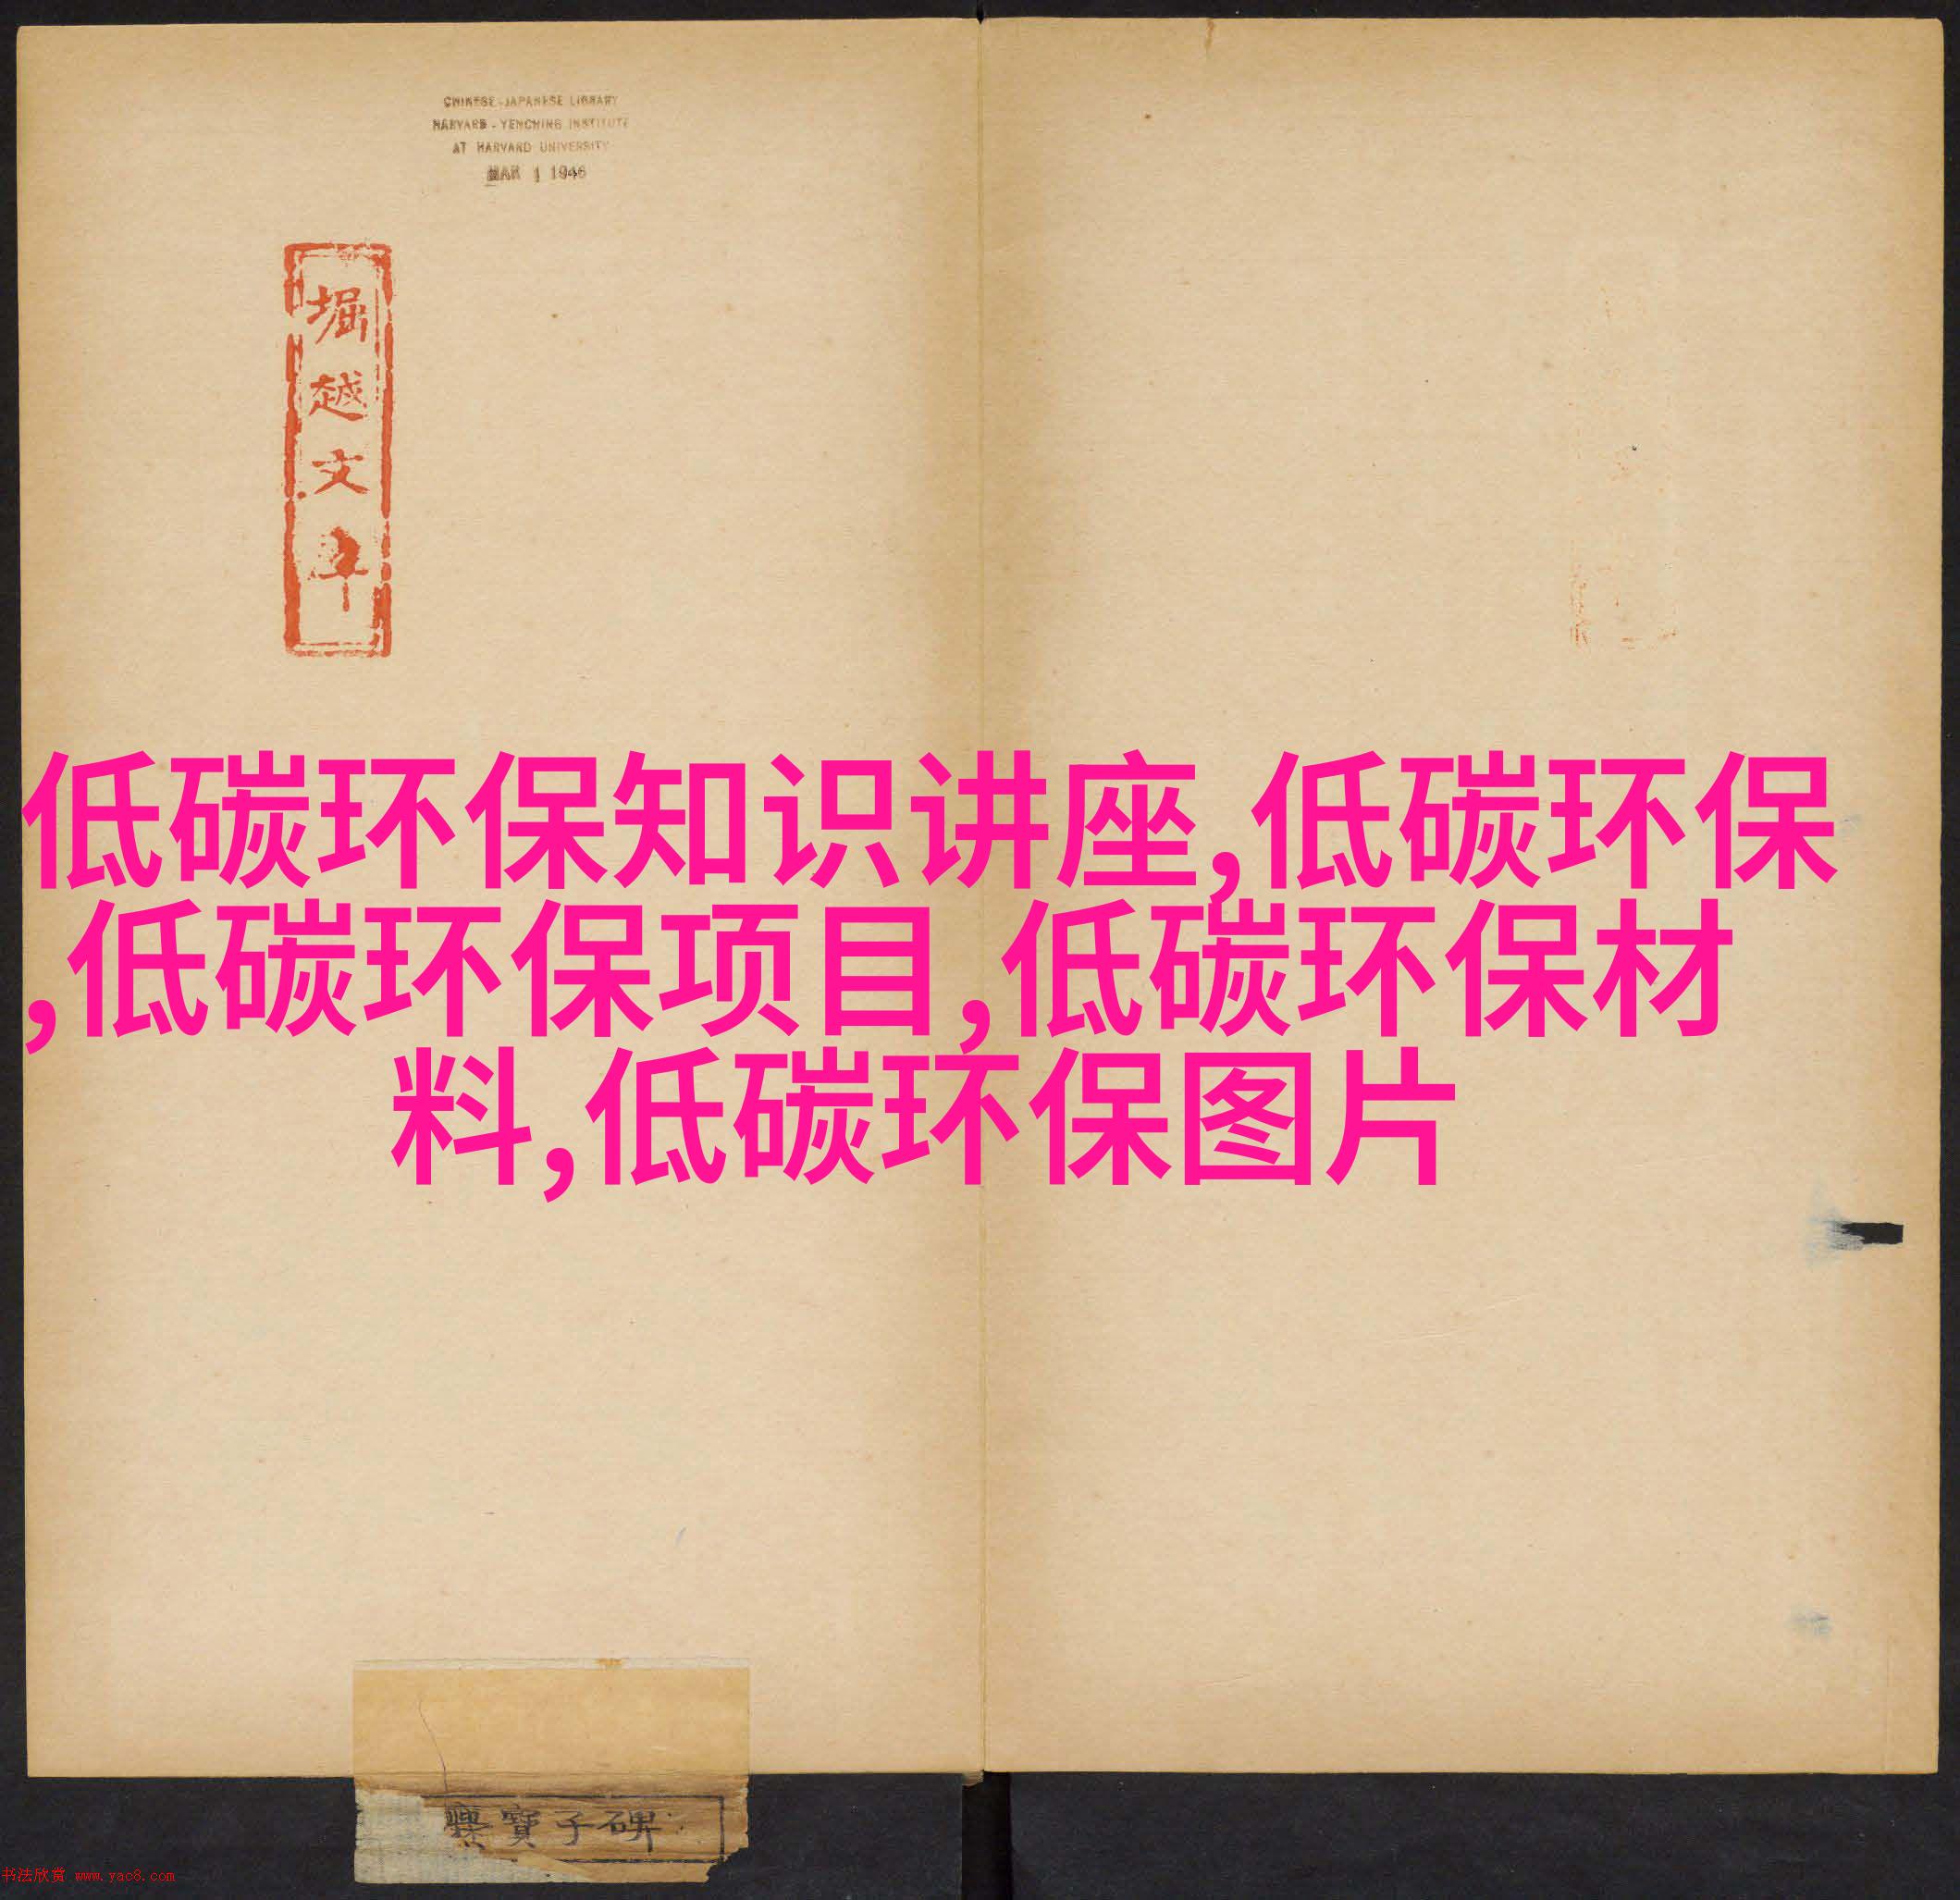 CHINESE-JAPANESE LIBRARY
HARVARD-YENCHING INSTITUTE
AT HARVARD UNIVERSITY
MAR 1 1946
堀越文
低碳环保知识讲座,低碳环保
,低碳环保项目,低碳环保材
料,低碳环保图片
爨寶子碑
书法欣赏 www.yac8.com